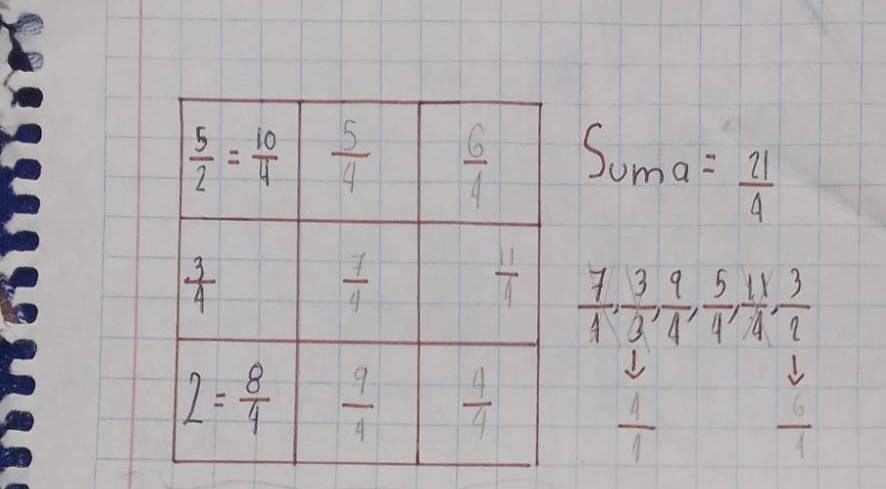 5/2 = 10/4 5/4 6/4
3/4 7/4 11/4
2 = 8/4 9/4 4/4
Suma = 21/4
7/4, 3/3, 9/4, 5/4, 11/4, 3/2
↓ ↓
4/4 6/4